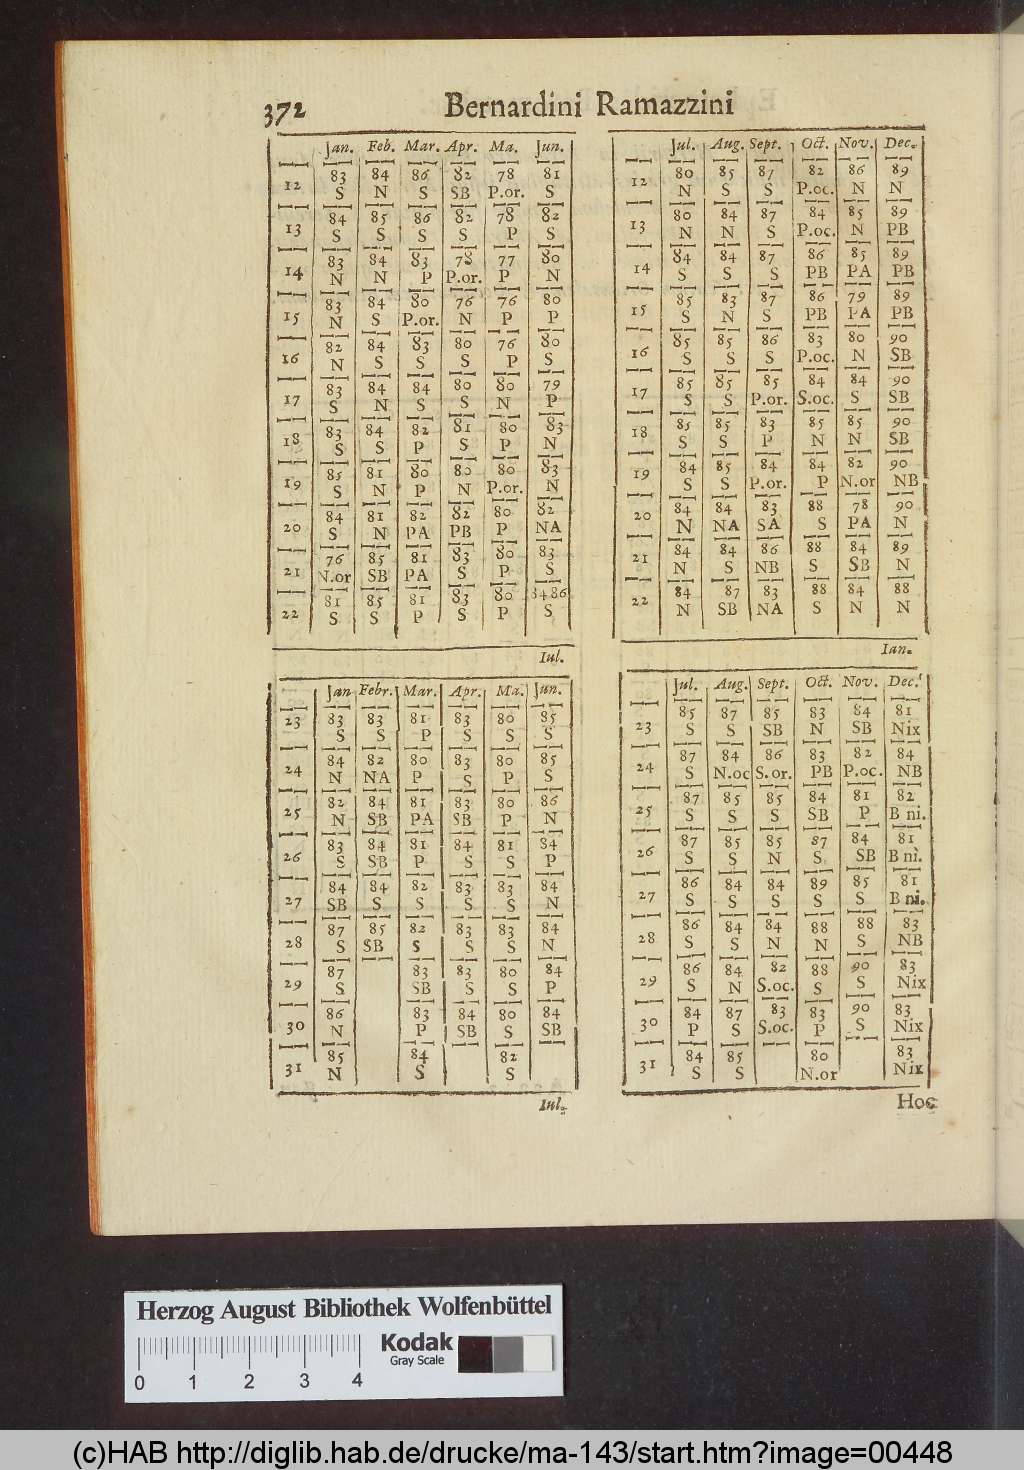 372 Bernardini Ramazzini
Jan. Feb. Mar. Apr. Ma. Jun.
12 83 84 86 82 78 81
S N S SB P.or. S
13 84 85 86 82 78 82
S S S S P S
14 83 84 83 78 77 80
N N P P.or. P N
15 83 84 80 76 76 80
N S P.or. N P P
16 82 84 83 80 76 80
N S S S P S
17 83 84 84 80 80 79
S N S S N P
18 83 84 82 81 80 83
S S P S P N
19 85 81 80 80 80 83
S N P N P.or. N
20 84 81 82 82 80 82
S N PA PB P NA
21 76 85 81 83 80 83
N.or SB PA S P S
22 81 85 81 83 80 8486
S S P S P S
Iul.
Jul. Aug. Sept. Oct. Nov. Dec.
12 80 85 87 82 86 89
N S S P.oc. N N
13 80 84 87 84 85 89
N N S P.oc. N PB
14 84 84 87 86 85 89
S S S PB PA PB
15 85 83 87 86 79 89
S N S PB PA PB
16 85 85 86 83 80 90
S S S P.oc. N SB
17 85 85 85 84 84 90
S S P.or. S.oc. S SB
18 85 85 83 85 85 90
S S P N N SB
19 84 85 84 84 82 90
S S P.or. P N.or NB
20 84 84 83 88 78 90
N NA SA S PA N
21 84 84 86 88 84 89
N S NB S SB N
22 84 87 83 88 84 88
N SB NA S N N
Ian.
Jan Febr. Mar. Apr. Ma. Jun.
23 83 83 81 83 80 85
S S P S S S
24 84 82 80 83 80 85
N NA P S P S
25 82 84 81 83 80 86
N SB PA SB P N
26 83 84 81 84 81 84
S SB P S S P
27 84 84 82 83 83 84
SB S S S S N
28 87 85 82 83 83 84
S SB S S S N
29 87 83 83 80 84
S SB S S P
30 86 83 84 80 84
N P SB S SB
31 85 84 82
N S S
Iul.
Jul. Aug. Sept. Oct. Nov. Dec.
23 85 87 85 83 84 81
S S SB N SB Nix
24 87 84 86 83 82 84
S N.oc S.or. PB P.oc. NB
25 87 85 85 84 81 82
S S S SB P B ni.
26 87 85 85 87 84 81
S S N S SB B ni.
27 86 84 84 89 85 81
S S S S S B ni.
28 86 84 84 88 88 83
S S N N S NB
29 86 84 82 88 90 83
S N S.oc. S S Nix
30 84 87 83 83 90 83
P S S.oc. P S Nix
31 84 85 80 83
S S N.or Nix
Hoc
Herzog August Bibliothek Wolfenbüttel
Kodak
Gray Scale
0 1 2 3 4
(c)HAB http://diglib.hab.de/drucke/ma-143/start.htm?image=00448